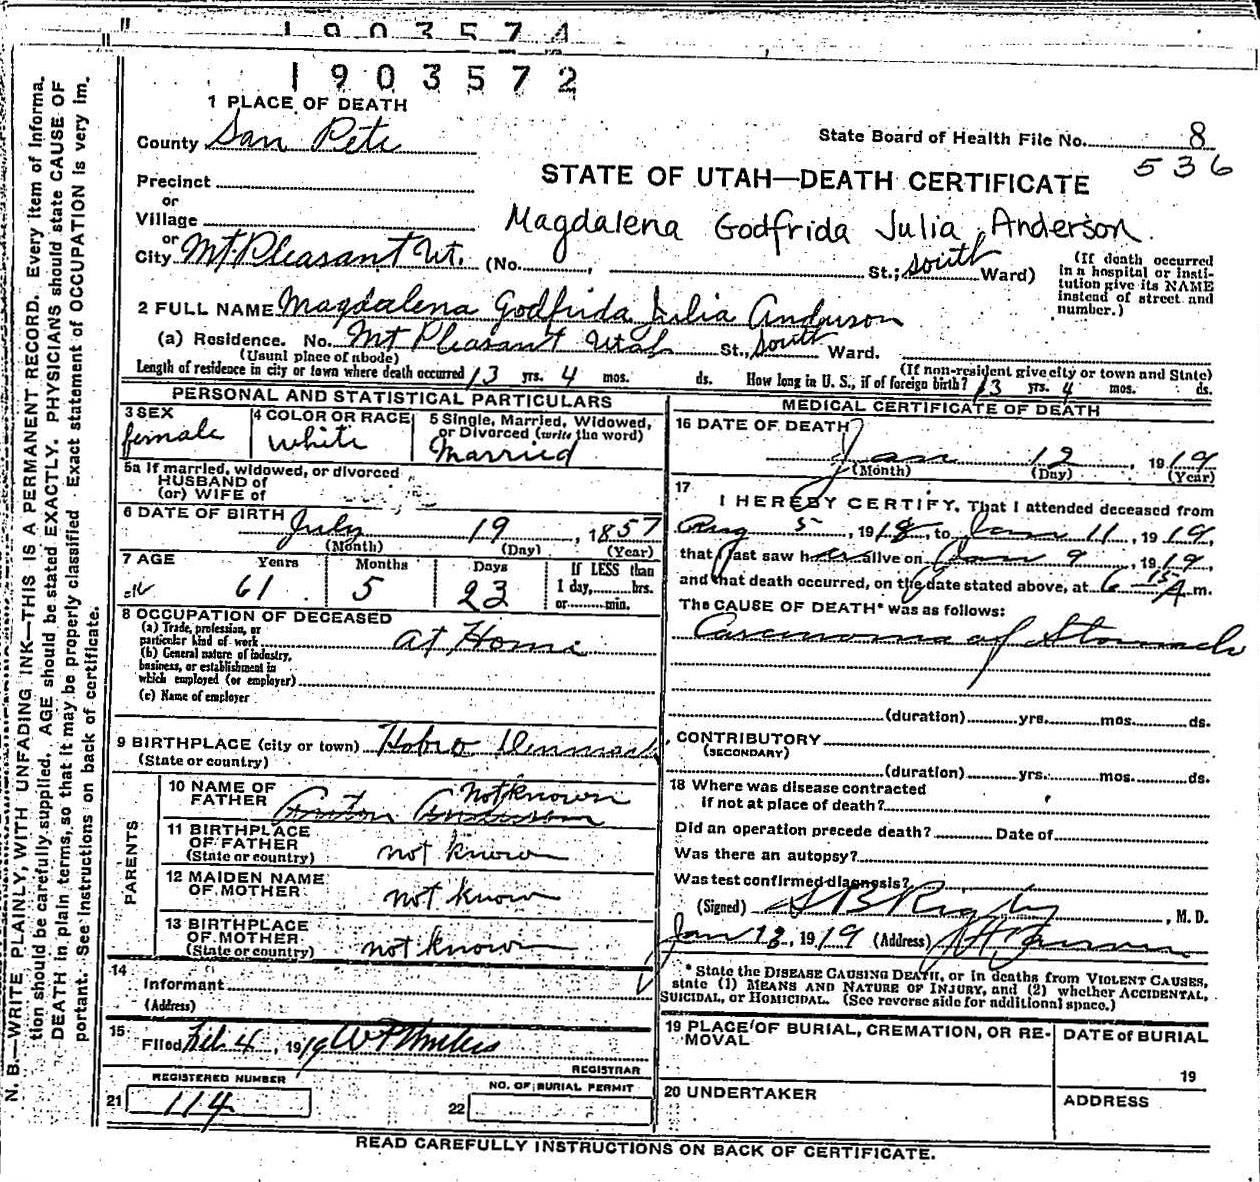 1903574
1903572
1 PLACE OF DEATH
County San Pete
State Board of Health File No. 8
536
Precinct
or
Village
or
City Mt. Pleasant Ut. (No. , St.; south Ward)
STATE OF UTAH—DEATH CERTIFICATE
Magdalena Godfrida Julia Anderson.
(If death occurred in a hospital or insti-
tution give its NAME
instead of street and
number.)
2 FULL NAME Magdalena Godfrida Julia Anderson
(a) Residence. No. Mt Pleasant Utah St., south Ward.
(Usual place of abode) (If non-resident give city or town and State)
Length of residence in city or town where death occurred 13 yrs. 4 mos. ds. How long in U. S., if of foreign birth? 13 yrs. 4 mos. ds.
PERSONAL AND STATISTICAL PARTICULARS
3 SEX female
4 COLOR OR RACE white
5 Single, Married, Widowed,
or Divorced (write the word)
Married
5a If married, widowed, or divorced
HUSBAND of
(or) WIFE of
6 DATE OF BIRTH July 19, 1857
(Month) (Day) (Year)
7 AGE Years Months Days If LESS than
1 day, hrs.
or min.
61 5 23
8 OCCUPATION OF DECEASED
(a) Trade, profession, or
particular kind of work at Home
(b) General nature of industry,
business, or establishment in
which employed (or employer)
(c) Name of employer
9 BIRTHPLACE (city or town) Hobro Denmark
(State or country)
PARENTS
10 NAME OF
FATHER not known
11 BIRTHPLACE
OF FATHER
(State or country) not known
12 MAIDEN NAME
OF MOTHER not know
13 BIRTHPLACE
OF MOTHER
(State or country) not known
14
Informant
(Address)
15
Filed Feb. 4, 1919
REGISTRAR
REGISTERED NUMBER
21 114
NO. OF BURIAL PERMIT
22
MEDICAL CERTIFICATE OF DEATH
16 DATE OF DEATH
Jan 12, 1919
(Month) (Day) (Year)
17
I HEREBY CERTIFY, That I attended deceased from
Aug 5, 1918, to Jan 11, 1919,
that I last saw her alive on Jan 9, 1919,
and that death occurred, on the date stated above, at 6 15 A m.
The CAUSE OF DEATH* was as follows:
Carcinoma of Stomach
(duration) yrs. mos. ds.
CONTRIBUTORY
(SECONDARY)
(duration) yrs. mos. ds.
18 Where was disease contracted
if not at place of death?
Did an operation precede death? Date of
Was there an autopsy?
Was test confirmed diagnosis?
(Signed) , M. D.
Jan 13, 1919 (Address)
* State the DISEASE CAUSING DEATH, or in deaths from VIOLENT CAUSES,
state (1) MEANS AND NATURE OF INJURY, and (2) whether ACCIDENTAL,
SUICIDAL, or HOMICIDAL. (See reverse side for additional space.)
19 PLACE OF BURIAL, CREMATION, OR RE-
MOVAL
DATE of BURIAL
19
20 UNDERTAKER
ADDRESS
READ CAREFULLY INSTRUCTIONS ON BACK OF CERTIFICATE.
N. B.—WRITE PLAINLY, WITH UNFADING INK—THIS IS A PERMANENT RECORD. Every item of informa-
tion should be carefully supplied. AGE should be stated EXACTLY. PHYSICIANS should state CAUSE OF
DEATH in plain terms, so that it may be properly classified. Exact statement of OCCUPATION is very im-
portant. See instructions on back of certificate.